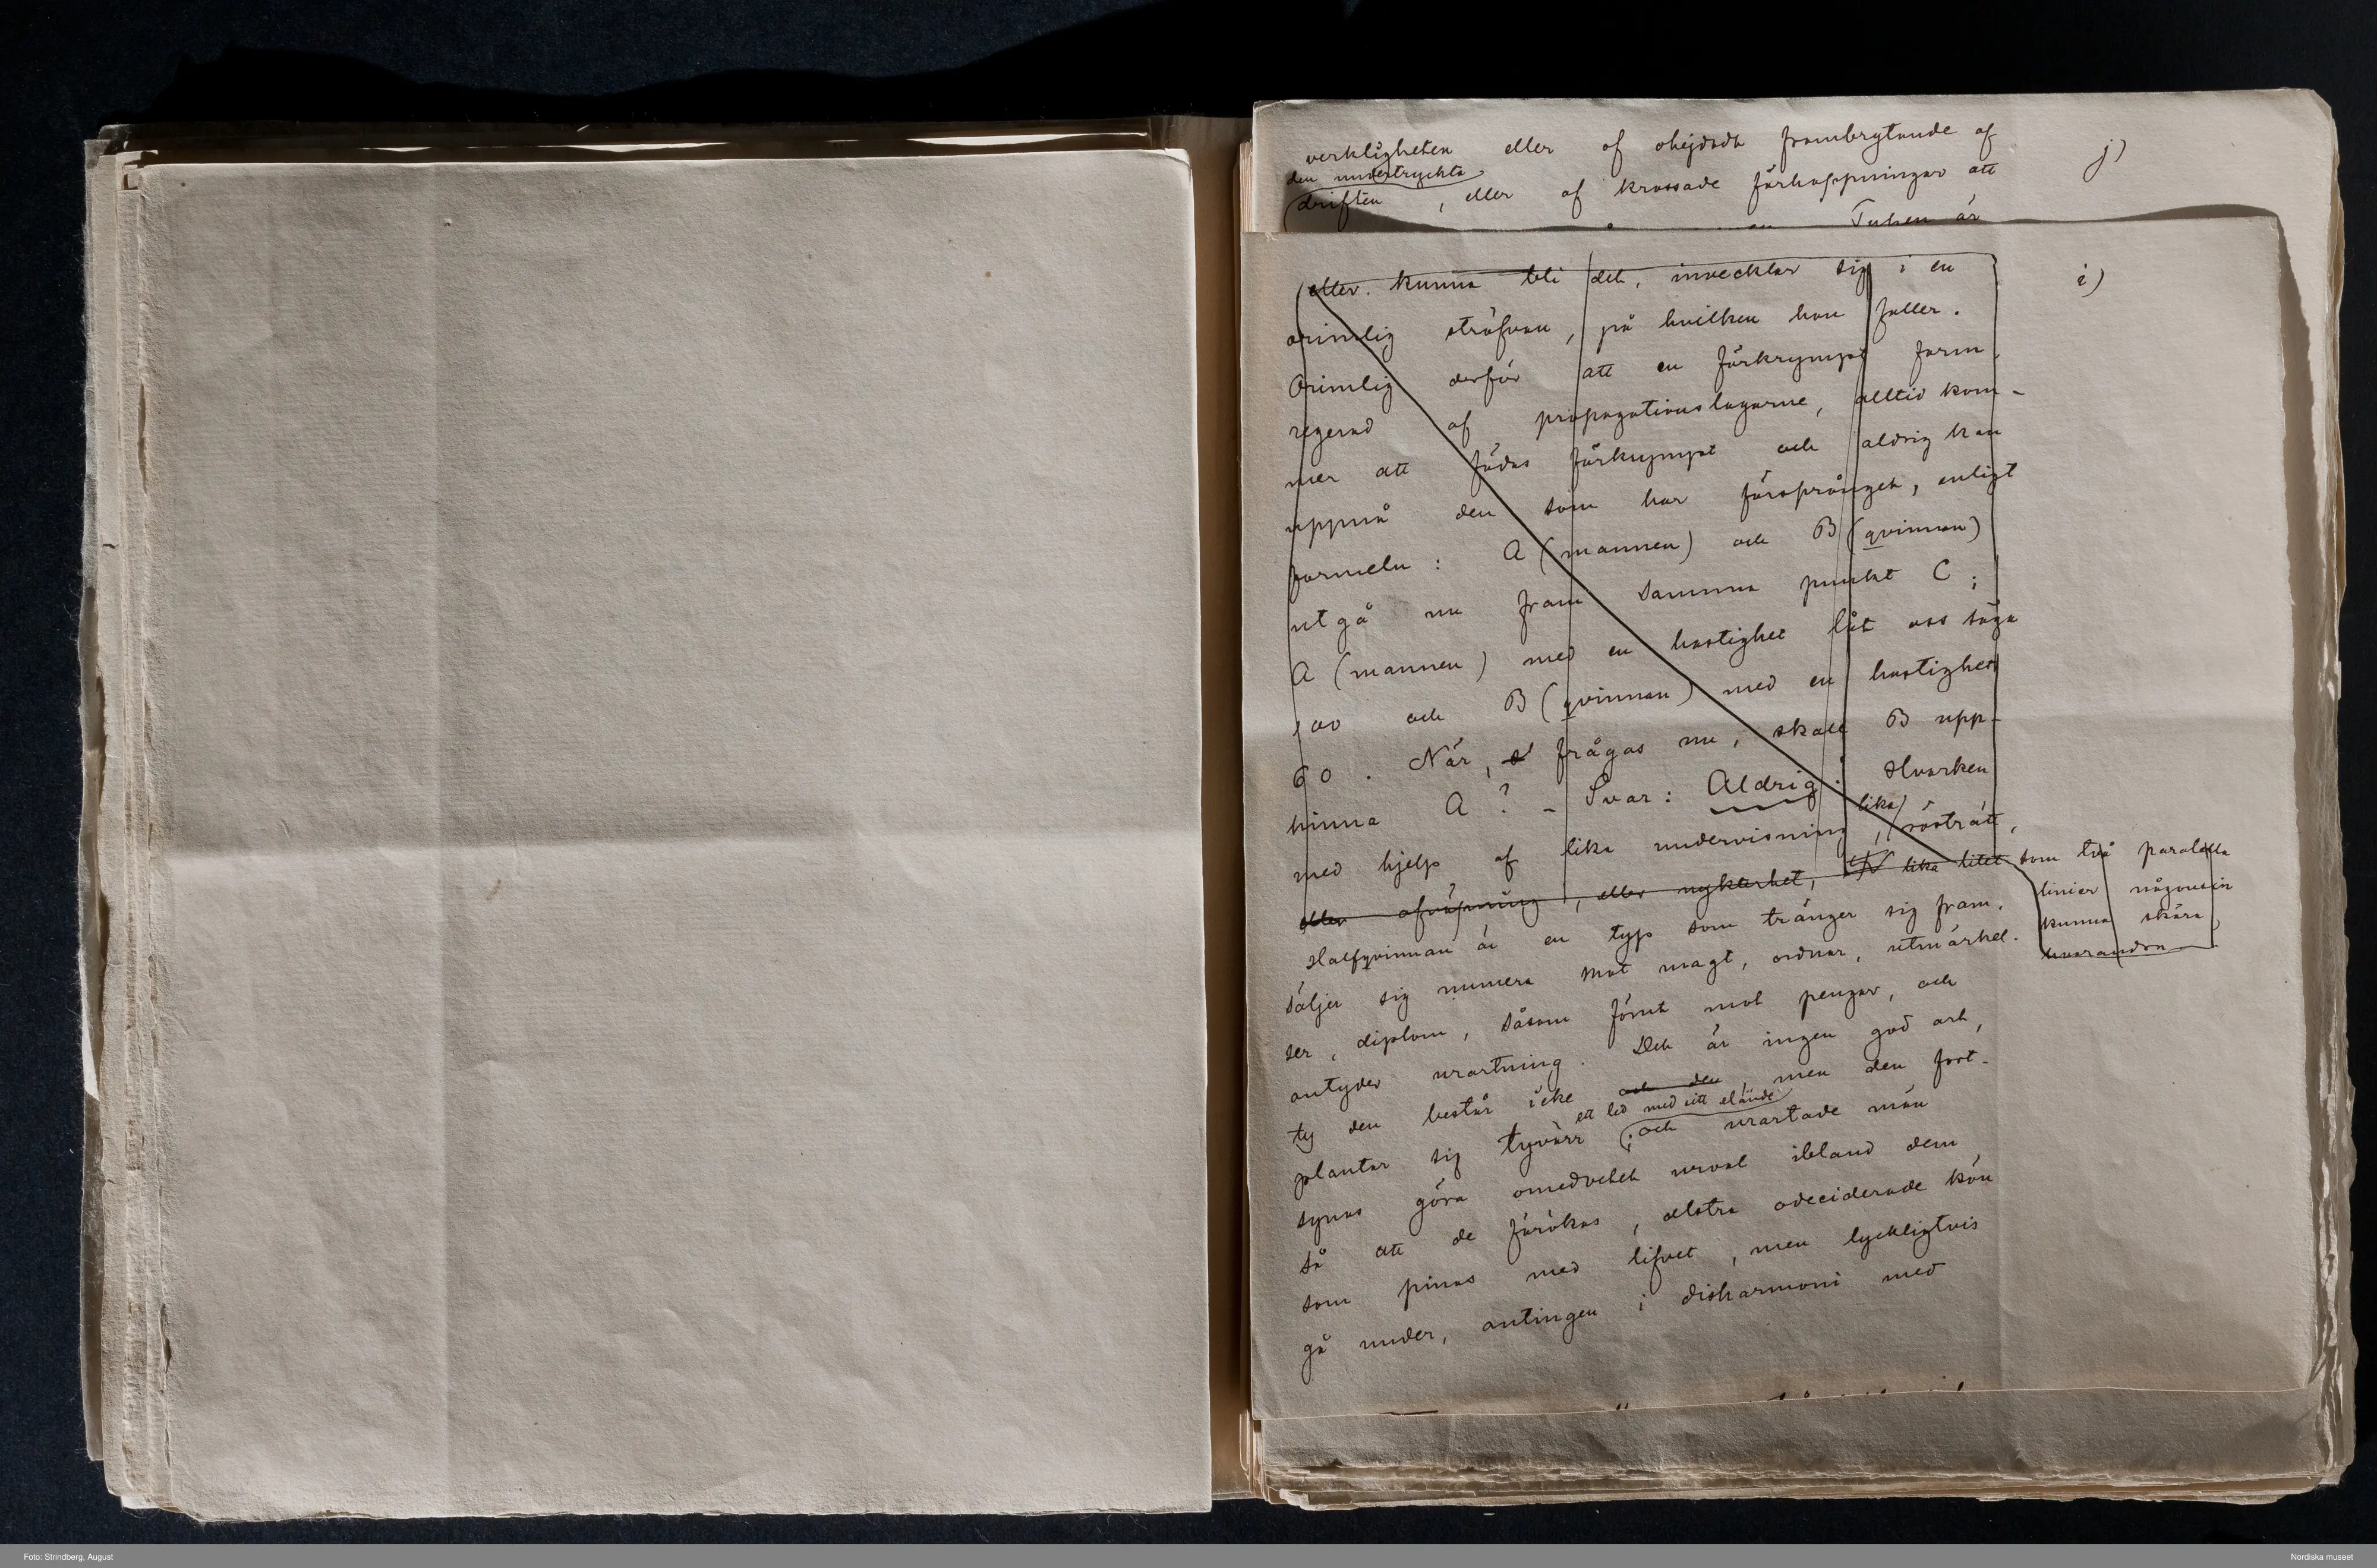 verkligheten eller af ohejdadt frambrytande af
j)
den undertryckta
driften, eller af krossade förhoppningar att
Tuken är
eller kunna bli det, invecklar sig i en
i)
orimlig sträfvan, på hvilken hon faller.
Orimlig derför att en förkrympt form,
regerad af propagationslagarne, alltid kom-
mer att födas förkrympt och aldrig kan
uppnå den som har försprånget, enligt
formeln: A (mannen) och B (qvinnan)
utgå nu från samma punkt C;
A (mannen) med en hastighet låt oss säga
100 och B (qvinnan) med en hastighet
60. När, frågas nu, skall B upp-
hinna A? – Svar: Aldrig! Hvarken
lika
med hjelp af lika undervisning, rösträtt,
eller afväpning, eller nykterhet, lika litet som två paralella
linier någonsin
kunna skära
hvarandra
Halfqvinnan är en typ som tränger sig fram,
säljer sig numera mot magt, ordnar, utmärkel-
ser, diplom, såsom förut mot pengar, och
antyder urartning. Det är ingen god art,
ty den består icke och den, men den fort-
ett led med sitt elände
plantar sig tyvärr; och urartade män
synas göra omedvetet urval ibland dem
så att de förökas, alstra odeciderade kön
som pinas med lifvet, men lyckligtvis
gå under, antingen i disharmoni med
Foto: Strindberg, August
Nordiska museet